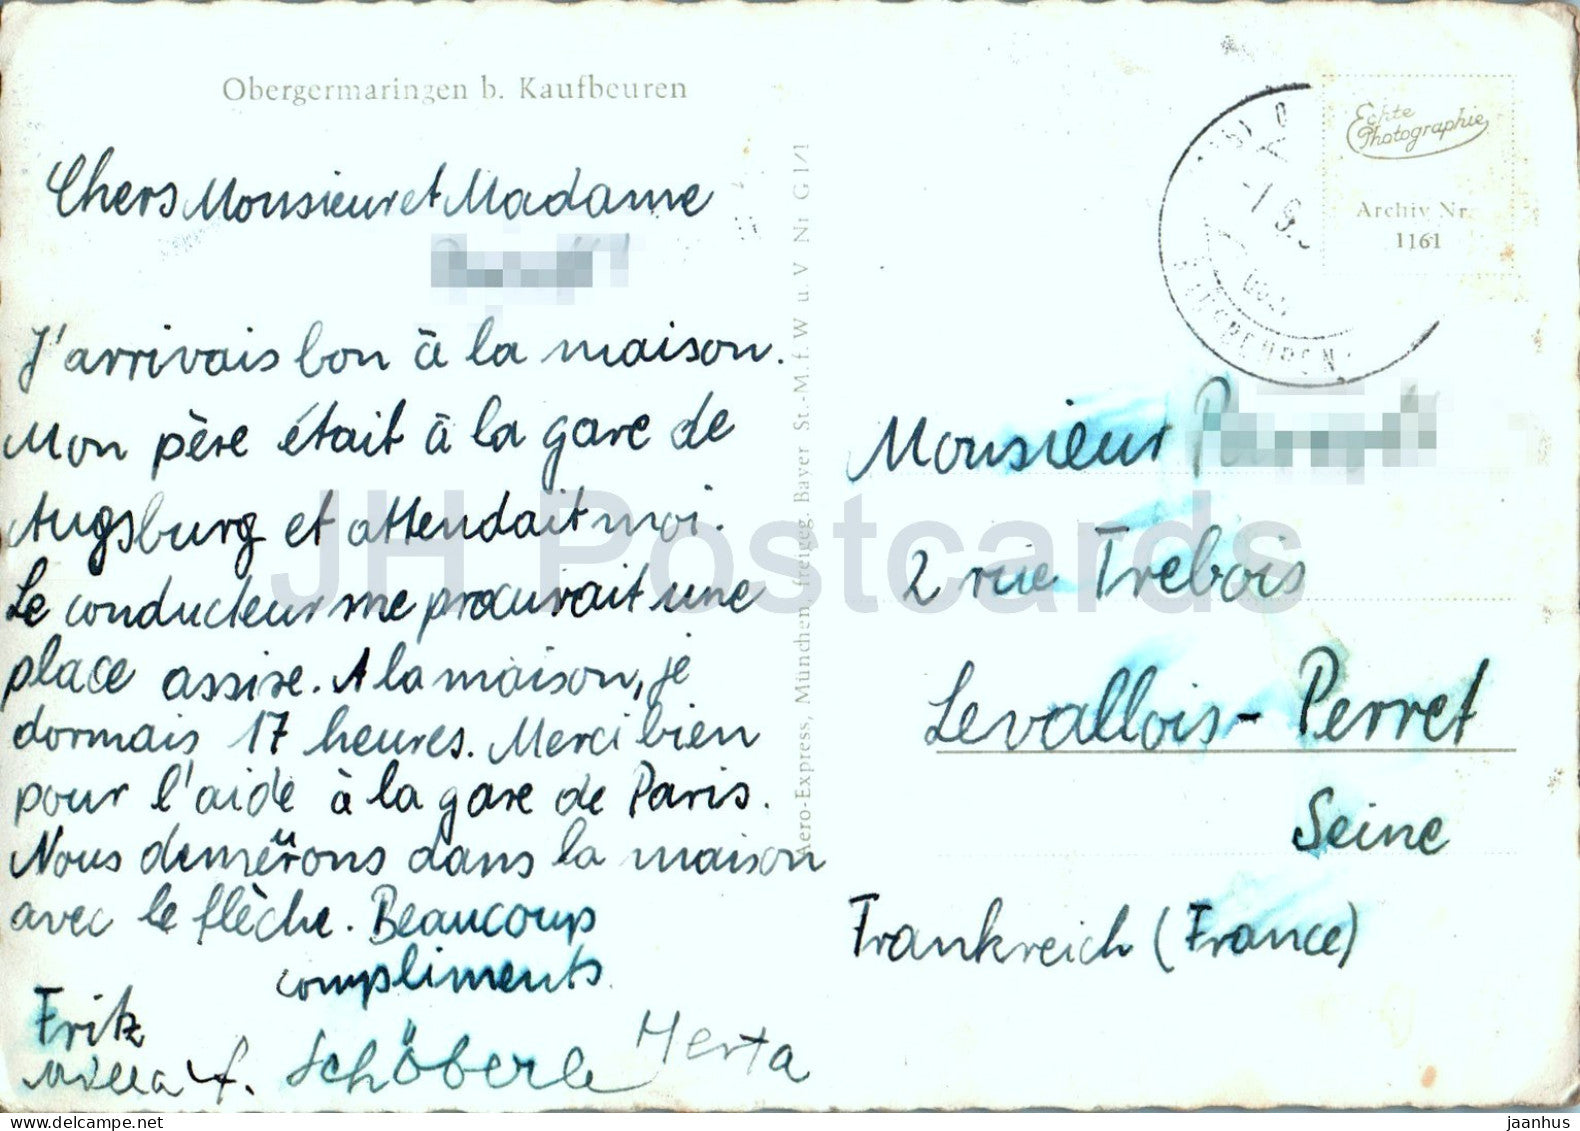 Obergermaringen b. Kaufbeuren
Chers Monsieur et Madame
J'arrivais bon à la maison.
Mon père était à la gare de
Augsburg et attendait moi.
Le conducteur me procurait une
place assise. A la maison, je
dormais 17 heures. Merci bien
pour l'aide à la gare de Paris.
Nous demeürons dans la maison
avec le flèche. Beaucoup
compliments
Fritz
Schöberle Herta
Aero-Express, München, freigeg. Bayer St.-M. f. W u. V Nr G 1/1
Echte
Photographie
Archiv Nr.
1161
Monsieur
2 rue Trebois
Levallois-Perret
Seine
Frankreich (France)
JH Postcards
jaanhus
delcampe.net